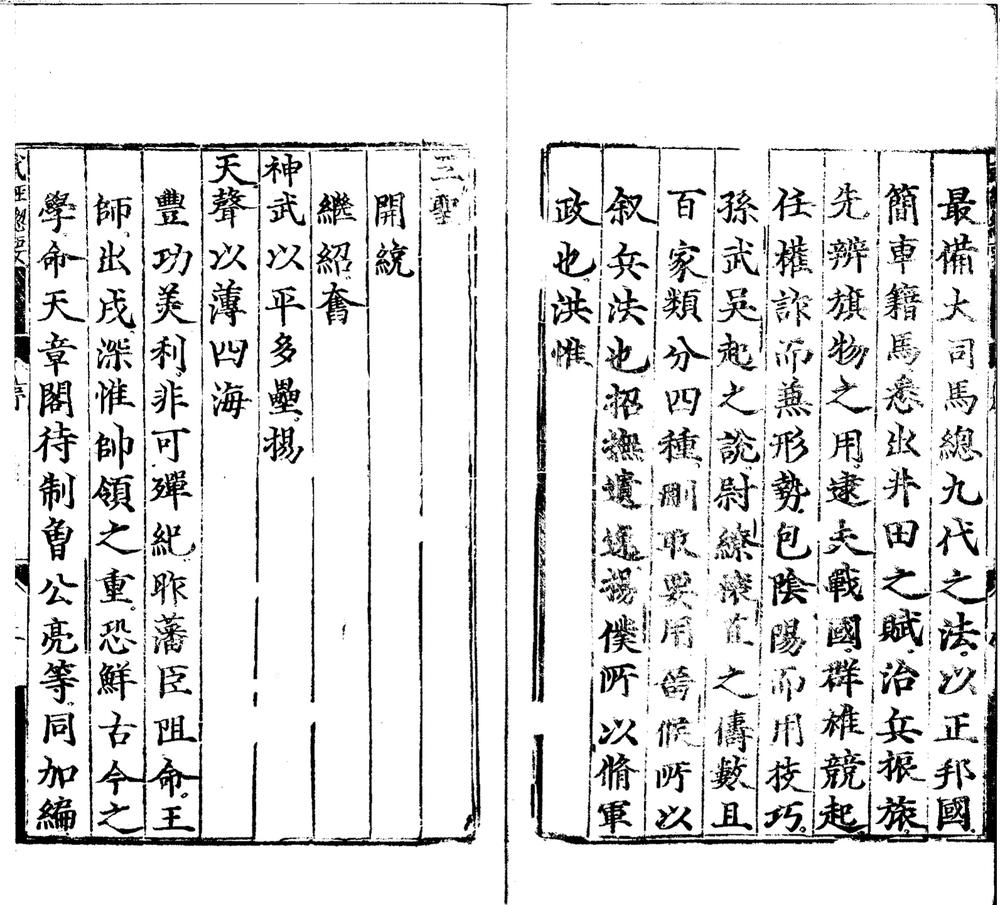 最備大司馬總九代之法以正邦國
簡車籍馬悉出井田之賦治兵振旅
先辨旗物之用逮夫戰國群雄競起
任權詐而兼形勢包陰陽而用技巧
孫武吳起之說尉繚穰苴之儔數且
百家類分四種刪取要用諸侯所以
叙兵法也招撫遺逸楊僕所以脩軍
政也洪惟
三聖
開統
繼紹奮
神武以平多壘揚
天聲以薄四海
豐功美利非可殫紀昨藩臣阻命王
師出戍深惟帥領之重恐鮮古今之
學命天章閣待制曾公亮等同加編
武經總要
序
二